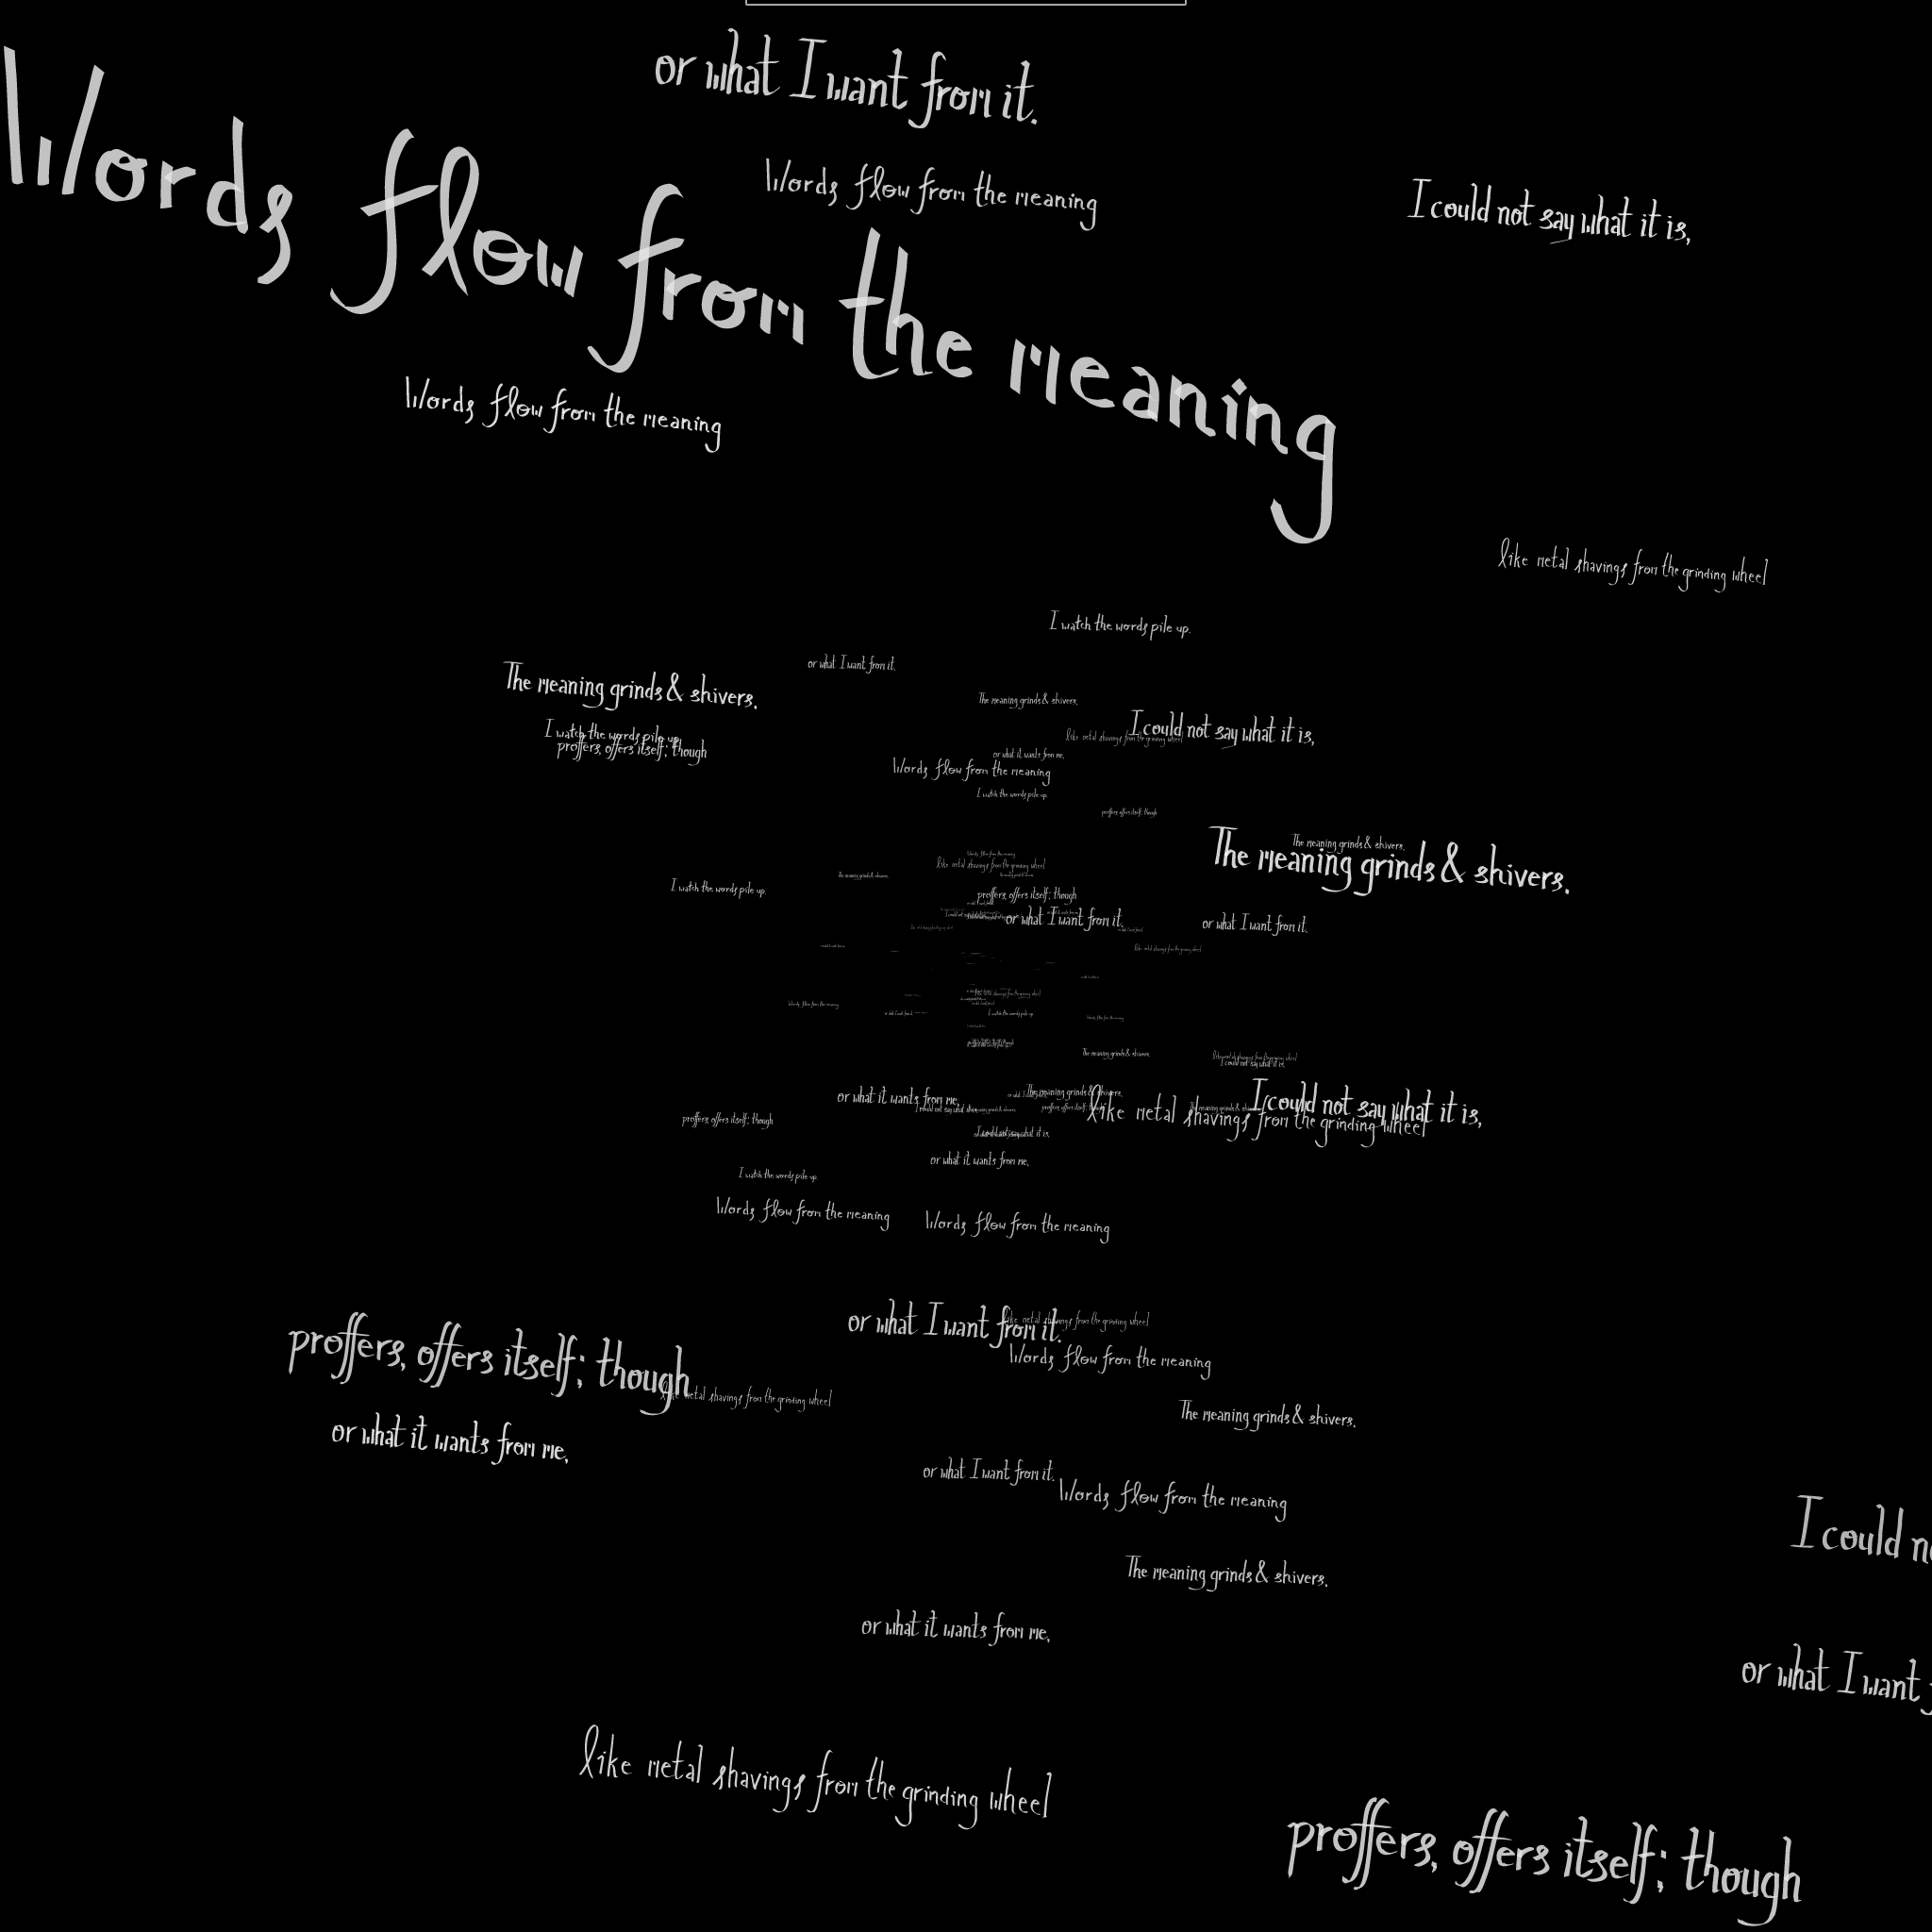 or what I want from it.
Words flow from the meaning
Words flow from the meaning
I could not say what it is,
Words flow from the meaning
like metal shavings from the grinding wheel
I watch the words pile up.
or what I want from it.
The meaning grinds & shivers.
The meaning grinds & shivers.
I could not say what it is,
I watch the words pile up.
like metal shavings from the grinding wheel
proffers, offers itself; though
or what it wants from me,
Words flow from the meaning
I watch the words pile up.
proffers, offers itself; though
The meaning grinds & shivers.
The meaning grinds & shivers.
like metal shavings from the grinding wheel
The meaning grinds & shivers.
I watch the words pile up.
proffers, offers itself; though
or what I want from it.
or what I want from it.
like metal shavings from the grinding wheel
like metal shavings from the grinding wheel
Words flow from the meaning
or what I want from it.
I watch the words pile up
Words flow from the meaning
The meaning grinds & shivers.
I could not say what it is,
The meaning grinds & shivers.
or what it wants from me,
I could not say what it is,
like metal shavings from the grinding wheel
proffers, offers itself; though
The meaning grinds & shivers.
proffers, offers itself; though
I could not say what it is,
or what it wants from me,
I watch the words pile up.
Words flow from the meaning
Words flow from the meaning
or what I want from it.
like metal shavings from the grinding wheel
proffers, offers itself; though
Words flow from the meaning
like metal shavings from the grinding wheel
The meaning grinds & shivers.
or what it wants from me,
or what I want from it.
Words flow from the meaning
I could
The meaning grinds & shivers.
or what it wants from me,
or what I want
like metal shavings from the grinding wheel
proffers, offers itself; though